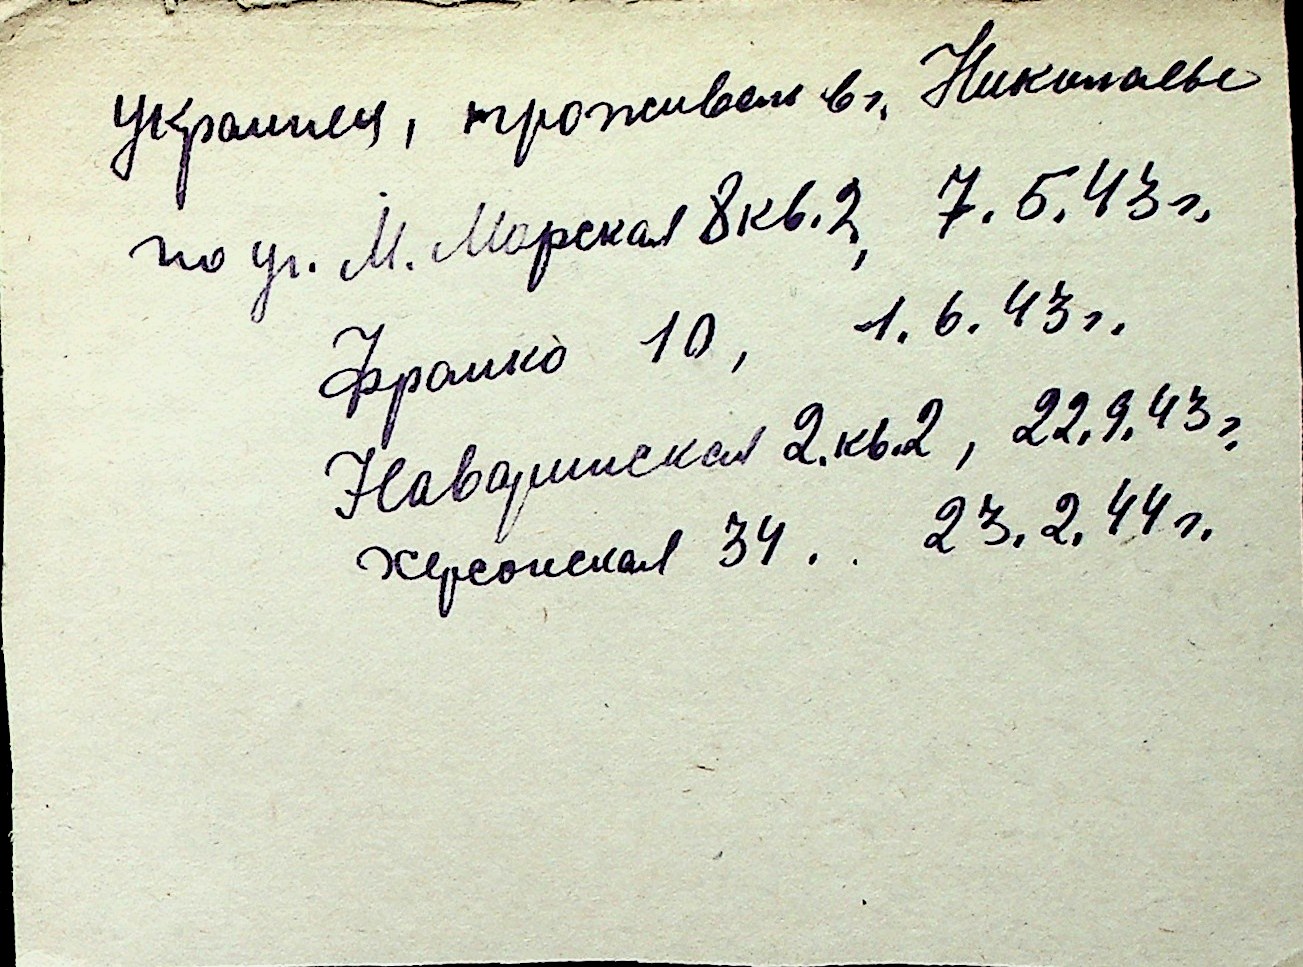 украинец, проживал в г. Николаеве
по ул. М. Морская 8 кв. 2, 7.5.43 г.
Франко 10, 1.6.43 г.
Наваринская 2. кв. 2, 22.9.43 г.
Херсонская 34. . 23.2.44 г.